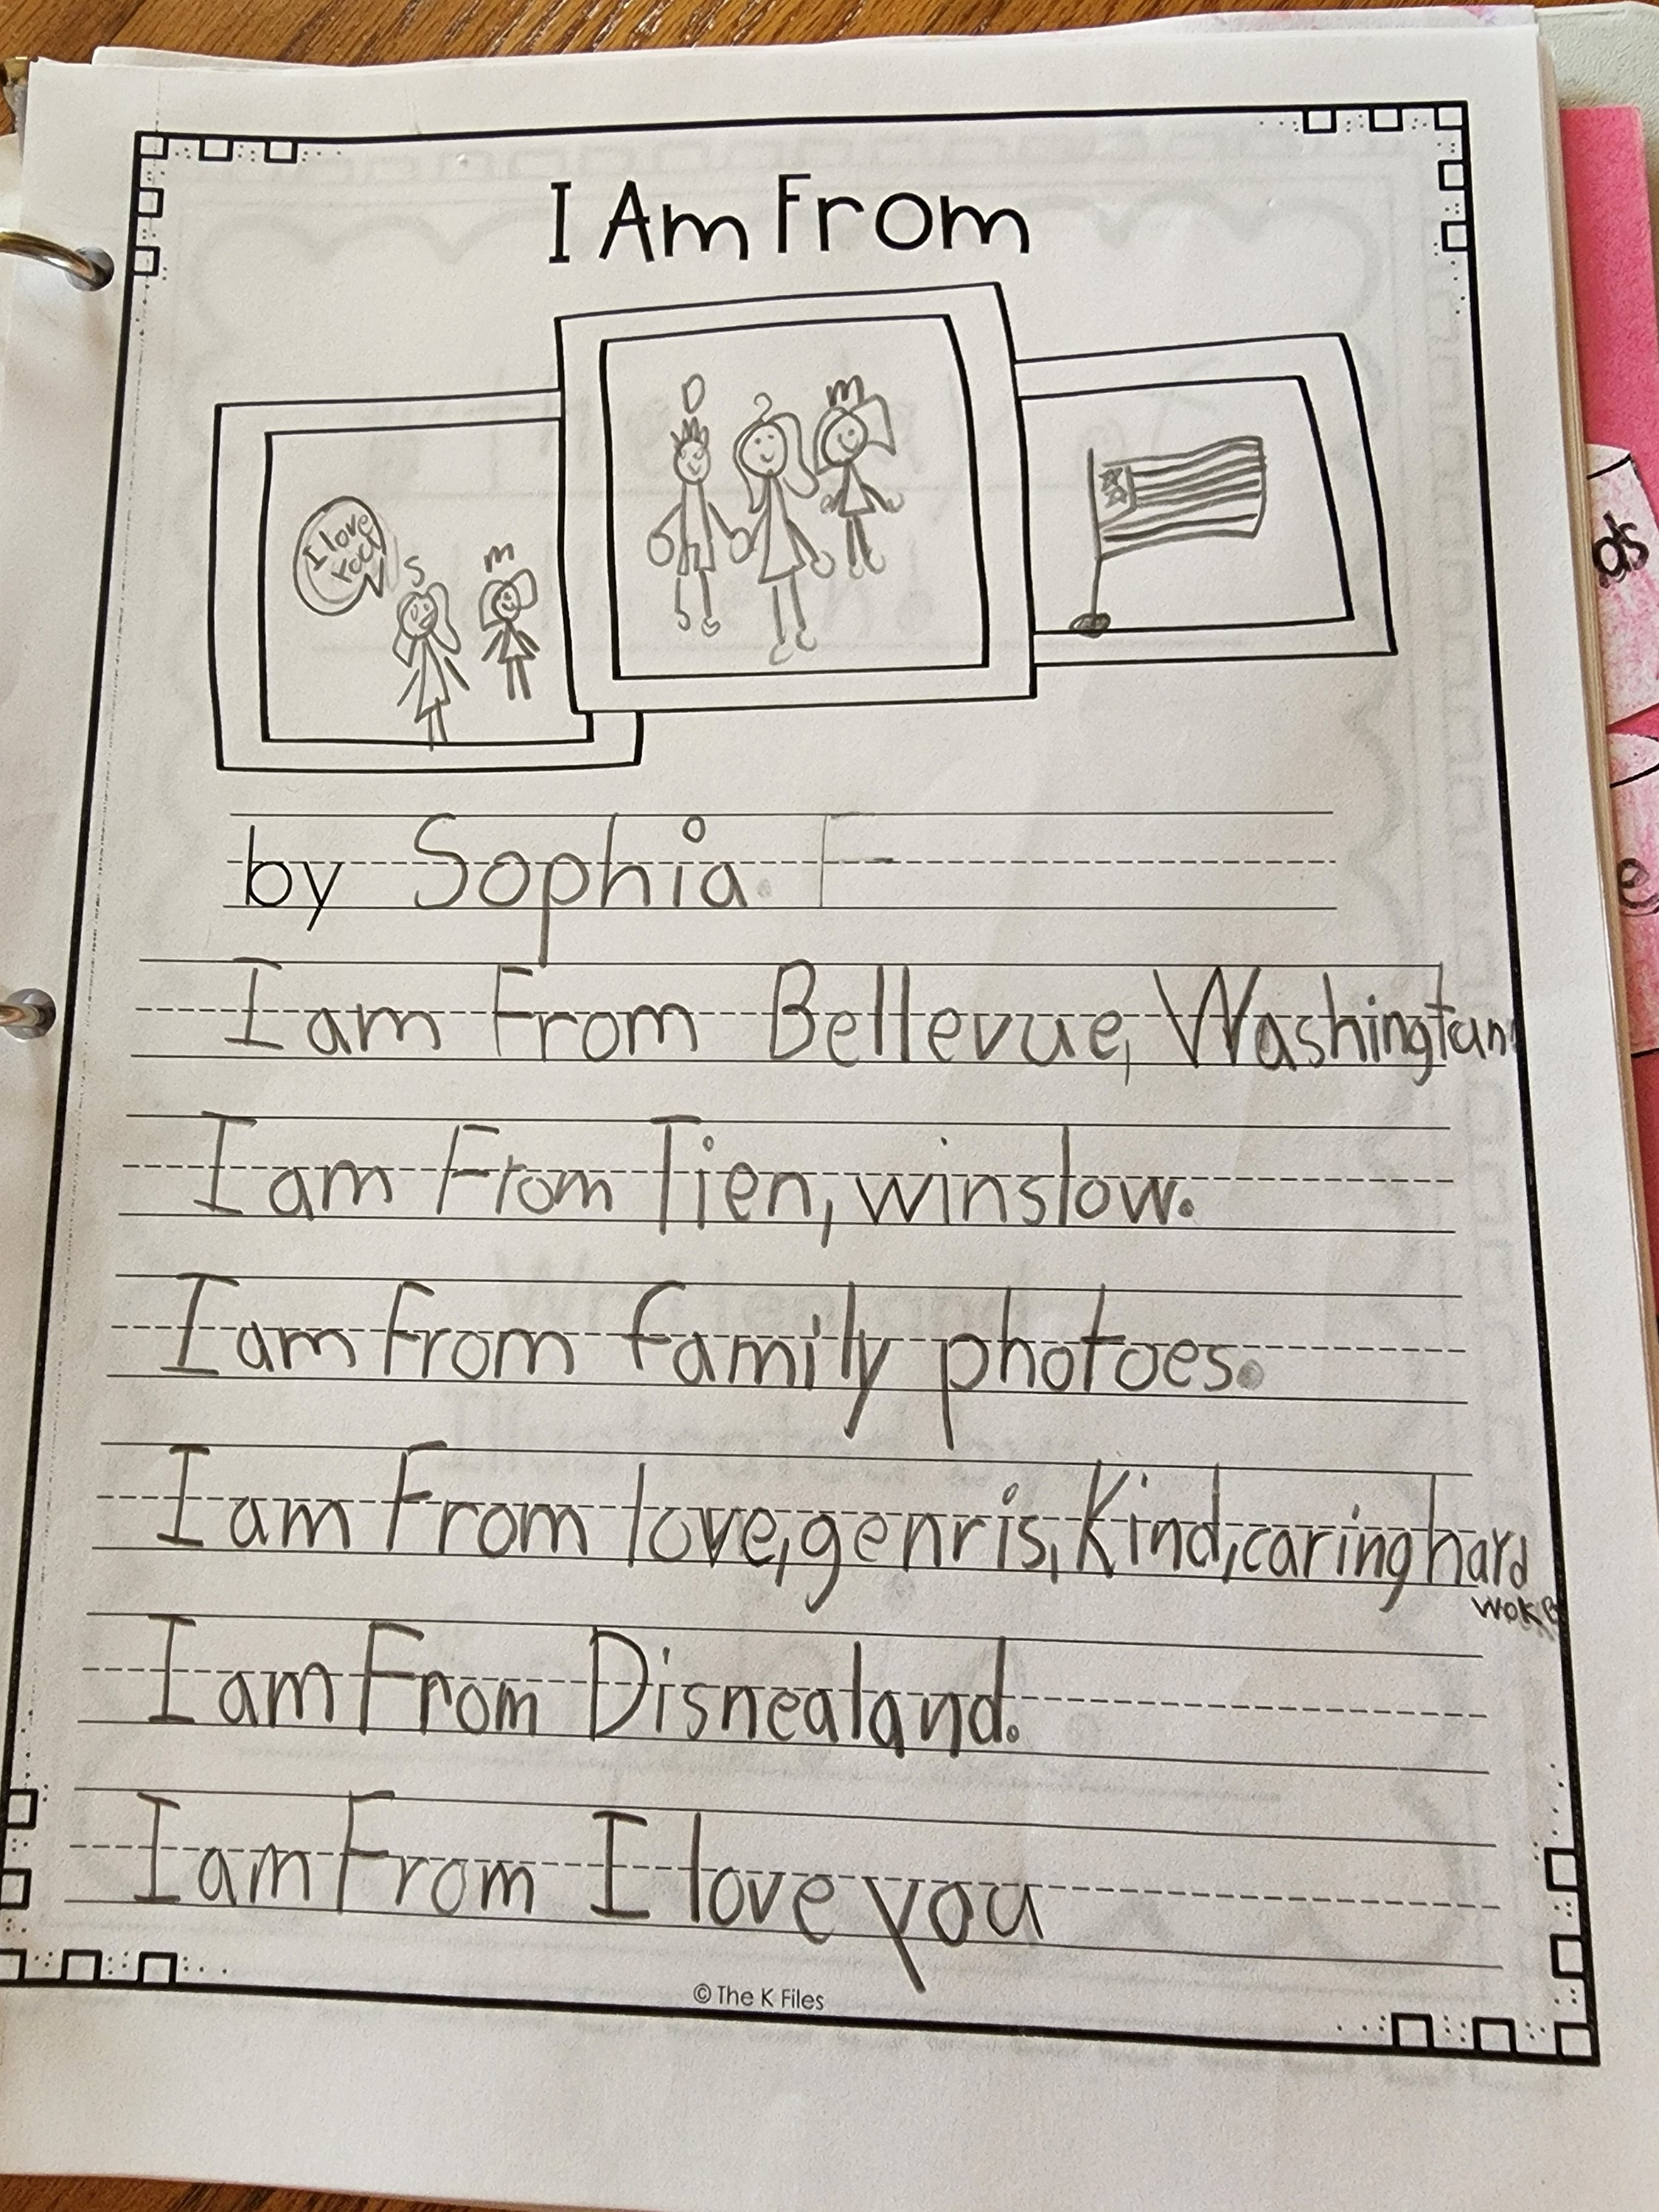 I Am From
D
m
I love
you
S
m
by Sophia F
I am From Bellevue, Washingtun
I am From Tien, winslow.
I am From family photoes.
I am From love, genris, Kind, caring hard
woke
I am From Disnealand.
I am From I love you
© The K Files
ds
e